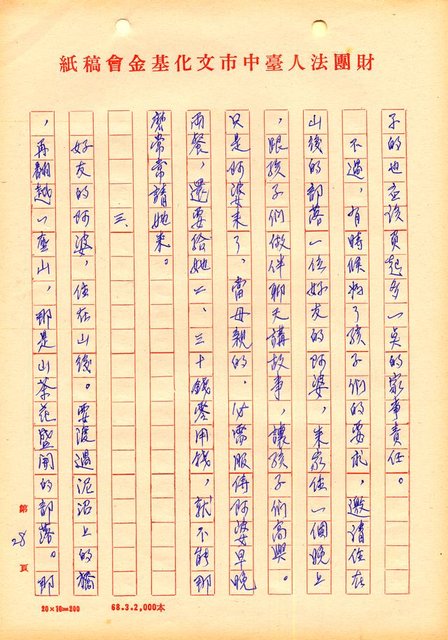 財團法人臺中市文化基金會稿紙
子的也應該負起多一點的家事責任。
不過,有時候為了孩子們的要求,邀請住在
山後的部落一位好友的阿婆,來家住一個晚上
,跟孩子們做伴聊天講故事,讓孩子們高興。
只是阿婆來了,當母親的,必需服侍阿婆早晚
兩餐,還要給她二、三十錢零用錢,就不能那
麼常常請她來。
三、
好友的阿婆,住在山後。要渡過泥沼上的橋
,再翻越一座山,那是山茶花盛開的部落。那
第 28 頁
20×10=200
68.3.2,000本